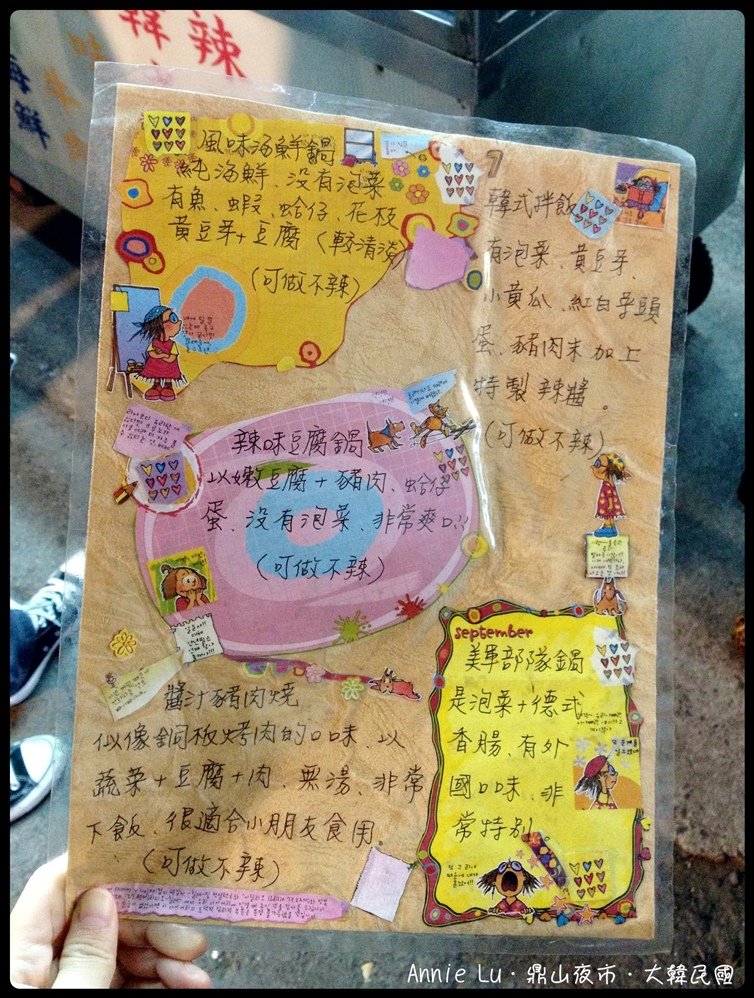 辣
韓
海鮮
風味海鮮鍋
純海鮮、沒有泡菜
有魚、蝦、蛤仔、花枝
黃豆芽+豆腐(較清淡)
(可做不辣)
韓式拌飯
有泡菜、黃豆芽、
小黃瓜、紅白芋頭
蛋、豬肉末加上
特製辣醬。
(可做不辣)
辣味豆腐鍋
以嫩豆腐+豬肉、蛤仔
蛋、沒有泡菜、非常爽口!!
(可做不辣)
醬汁豬肉燒
似像銅板烤肉的口味 以
蔬菜+豆腐+肉、無湯、非常
下飯、很適合小朋友食用
(可做不辣)
september
美軍部隊鍋
是泡菜+德式
香腸、有外
國口味、非
常特別。
Annie Lu·鼎山夜市·大韓民國